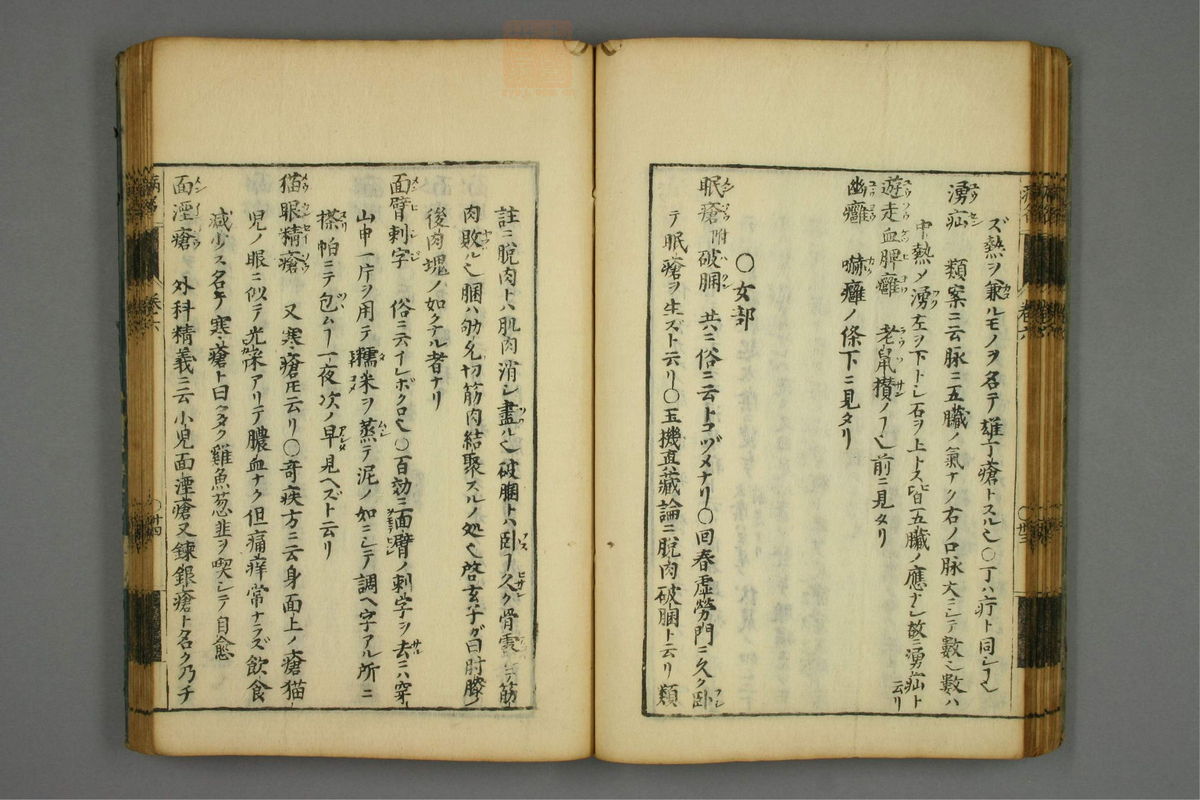 ズ熱ヲ兼ルモノヲ名テ雄丁瘡トスル也〇丁ハ疔ト同シ
湧疝　類案ニ云脉ニ五臓ノ氣ナク右ノ口脉大ニシテ數シ數ハ
中熱メ湧左ヲ下トシ石ヲ上トス皆五臓ノ應ナシ故ニ湧疝ト云リ
遊走血脾癰　老鼠攅ノ前ニ見タリ
幽癰　嚇癰ノ條下ニ見タリ
〇女部
眠瘡附破䐃　共ニ俗ニ云トコヅメナリ〇回春虚勞門ニ久ク卧
テ眠瘡ヲ生ズト云リ〇玉機真藏論ニ脱肉破䐃ト云リ類
註ニ脱肉トハ肌肉消シ盡ル也破䐃トハ卧フ久ク骨露筋
肉敗ル也䐃ハ切筋肉結聚スルノ処也啓玄子ガ曰肘膝ノ
後肉塊ノ如クナル者ナリ
面臂刺字　俗ニ云イレボクロ也〇百効ニ面臂ノ刺字ヲ去ニハ穿
山甲一片ヲ用テ糯米ヲ蒸テ泥ノ如ニシテ調ヘ字アル所ニ
搽帕ニテ包ム一夜次ノ早見ヘズト云リ
猫眼精瘡　又寒瘡トモ云リ〇奇疾方ニ云身面上ノ瘡猫
児ノ眼ニ似テ光采アリテ膿血ナク但痛痒常ナラズ飲食
減少ス名テ寒瘡ト曰多ク雞魚葱韭ヲ喫シテ自愈
面湮瘡　外科精義ニ云小児面湮瘡又錬銀瘡ト名ク乃チ
巻六
〇廿四
巻六